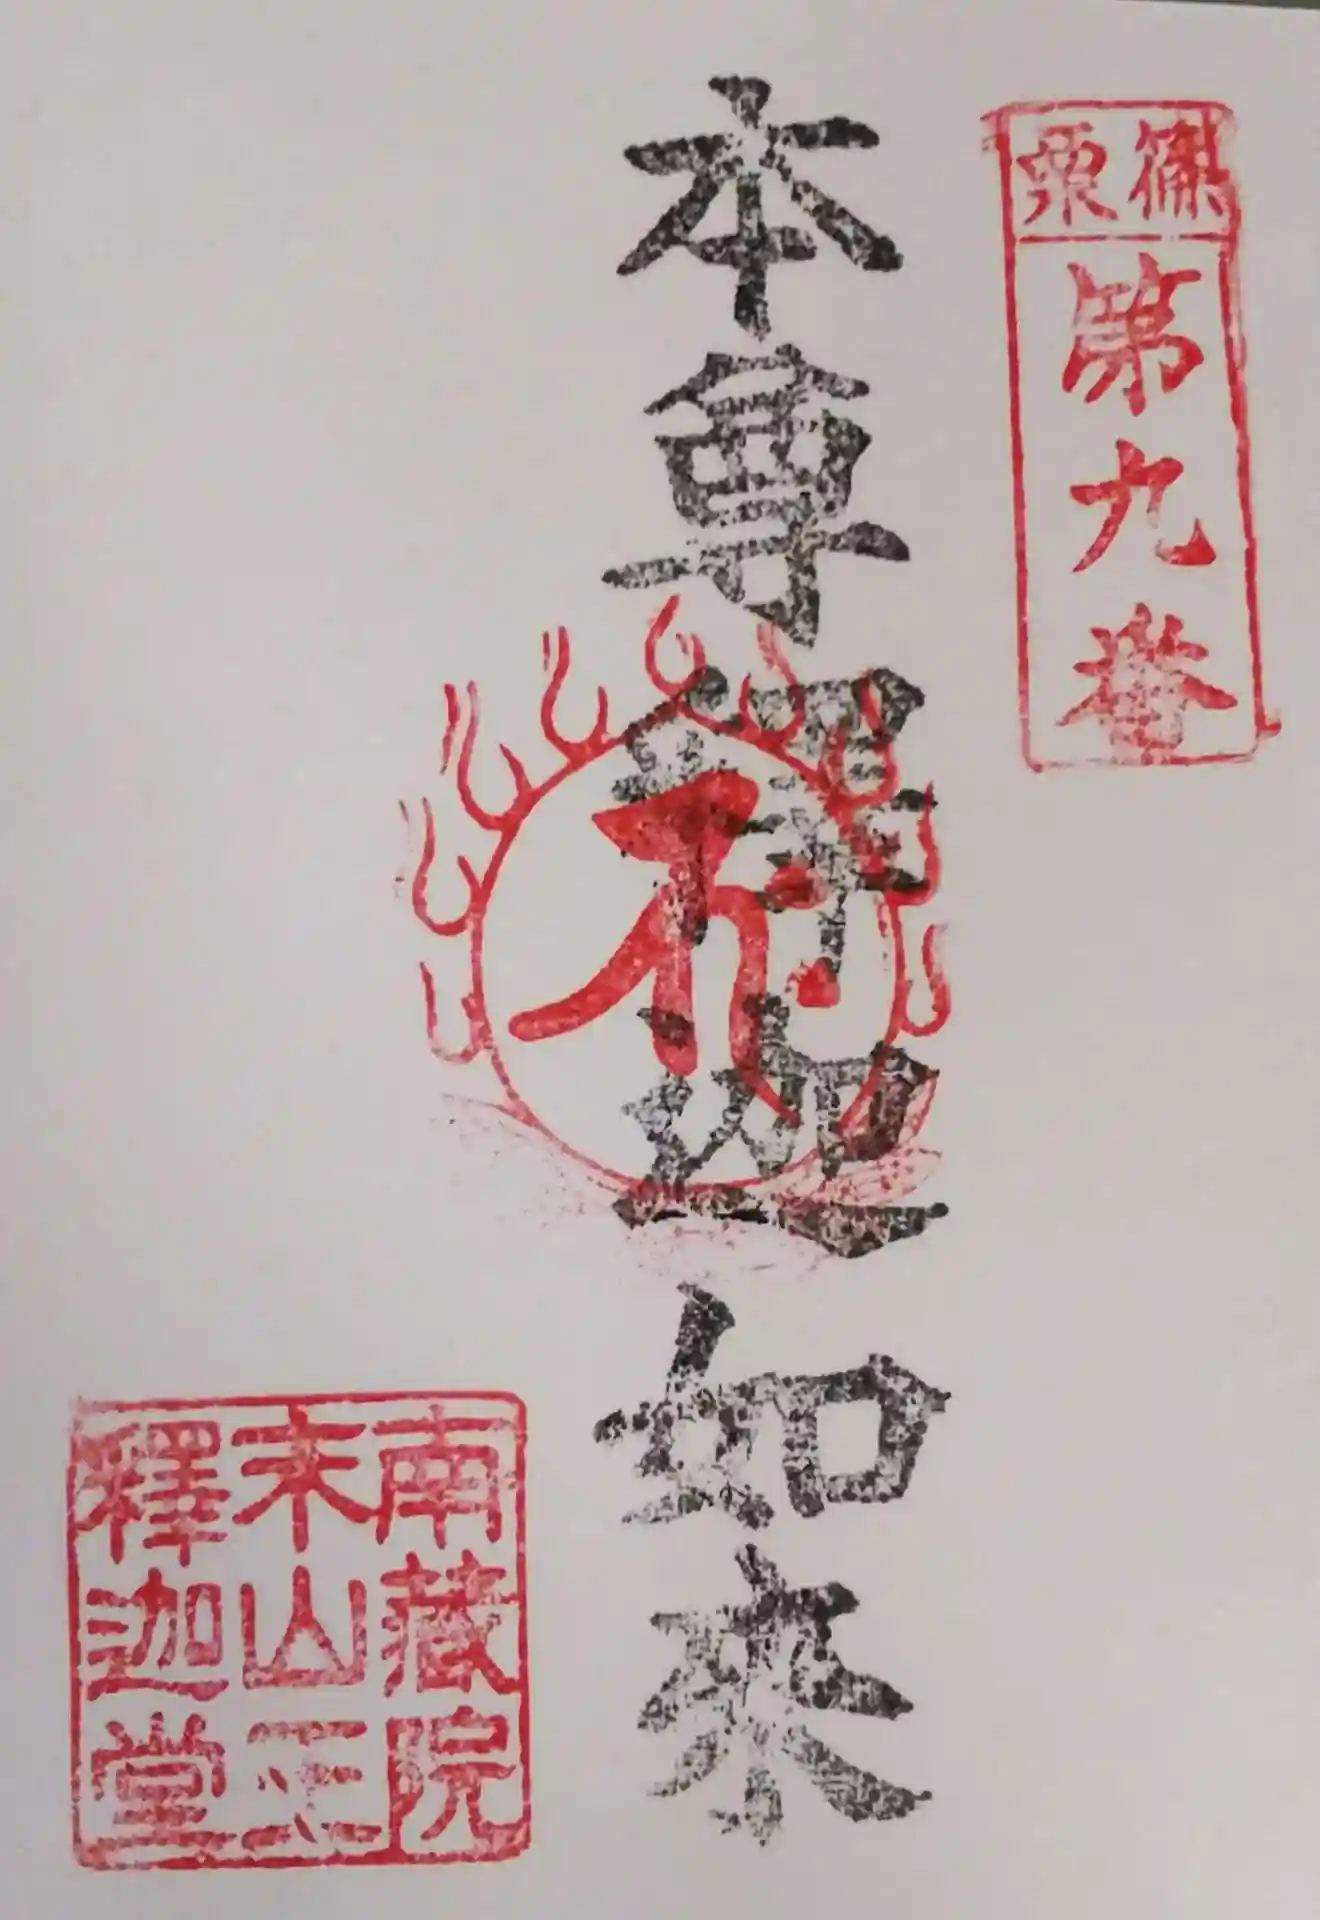 篠栗
第九番
本尊釋迦如来
南藏院
末山王
釋迦堂